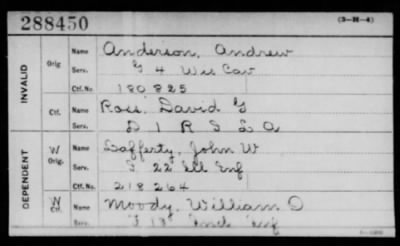 288450 (3-M-4)
INVALID
Orig Name Anderson, Andrew
Serv. G 4 Wis Cav
Ctf. No. 180825
Ctf. Name Ross, David G
Serv. D 1 R S L A
DEPENDENT
W Orig. Name Lafferty, John W
Serv. I 22 Ill Inf
Ctf. No. 218264
W Ctf. Name Moody, William D
Serv. Ind Inf